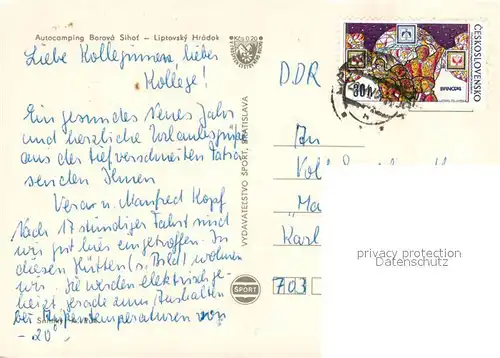 Autocamping Borová Sihoť — Liptovský Hrádok
Kčs 0,20
Liebe Kolleginnen, lieber
Kollege!
Ein gesundes Neues Jahr
und herzliche Urlaubsgrüße
aus der tiefverschneiten Tatra
senden Ihnen
Vera u. Manfred Kopf
Nach 17 stündiger Fahrt sind
wir gut hier eingetroffen. In
diesen Hütten (s. Bild) wohnen
wir. Sie werden elektrisch ge-
heizt, gerade zum Aushalten
bei Außentemperaturen von
-20°.
VYDAVATEĽSTVO ŠPORT, BRATISLAVA
ŠPORT
ČESKOSLOVENSKO
DDR
An
"Ma
Karl
703
privacy protection
Datenschutz